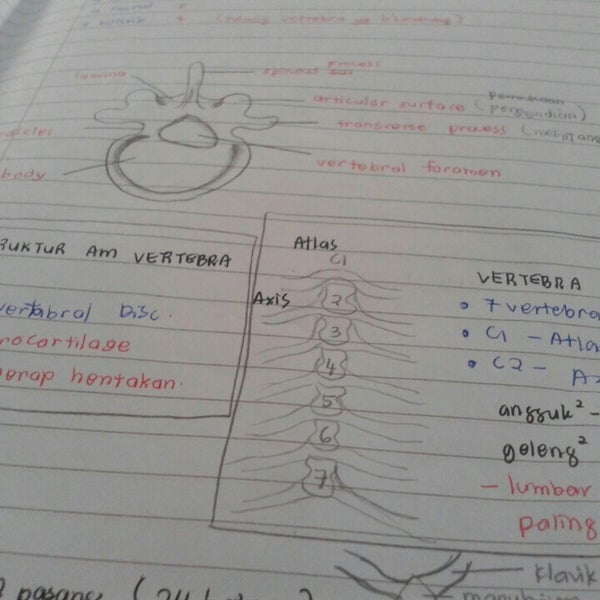 lamina
spinous process
articular surface (permukaan
pergendian)
transverse process
body
vertebral foramen
AM VERTEBRA
Disc.
hentakan.
Atlas
C1
Axis
2
3
4
5
6
7
VERTEBRA
• 7 vertebra
• C1 - Atla
• C2 - A
angguk² -
geleng²
- lumbar
paling
pasang (24
klavik